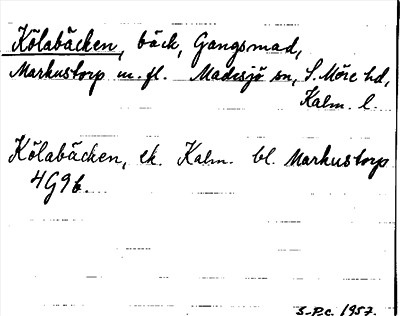 Kölabäcken, bäck, Gangsmad,
Markustorp m.fl. Madesjö sn, S. Möre hd,
Kalm. l.
Kölabäcken, ek. Kalm. bl. Markustorp
4G9b.
S-P.c. 1957.